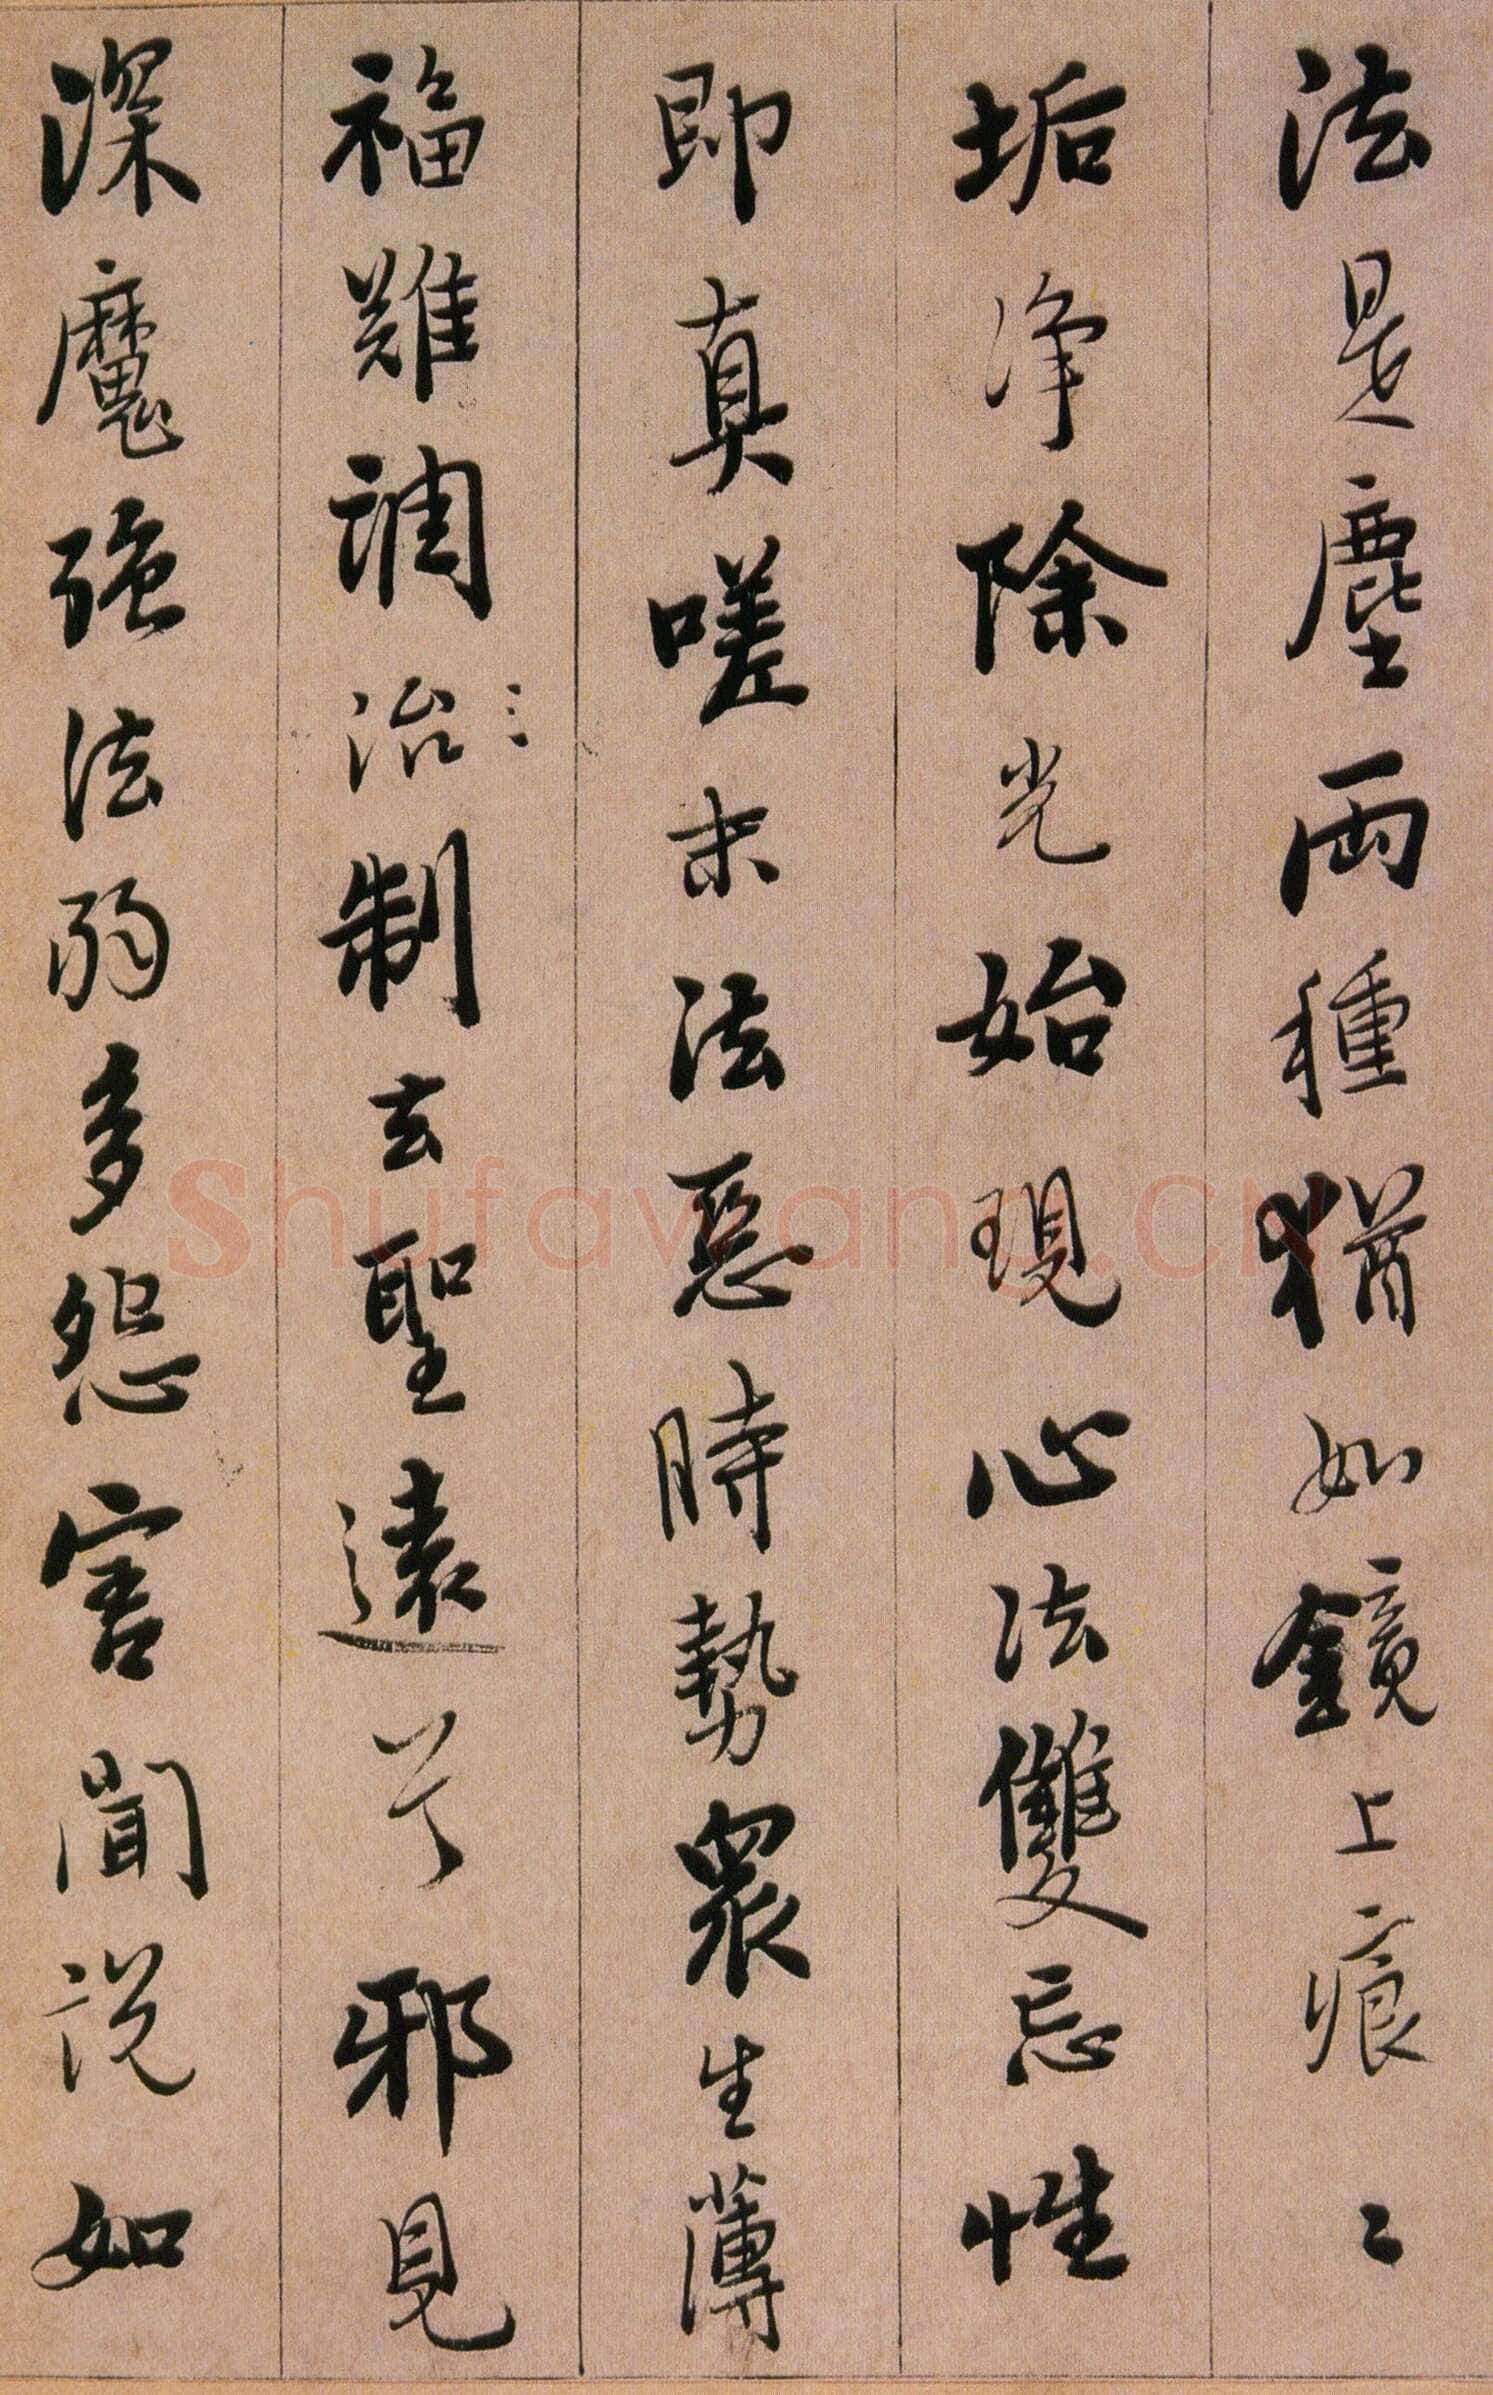 法是塵兩種猶如鏡上痕〻
垢淨除光始現心法雙忘性
即真嗟末法惡時勢眾生薄
福難調治制去聖遠兮邪見
深魔強法弱多怨害聞説如
Shufawang.CN